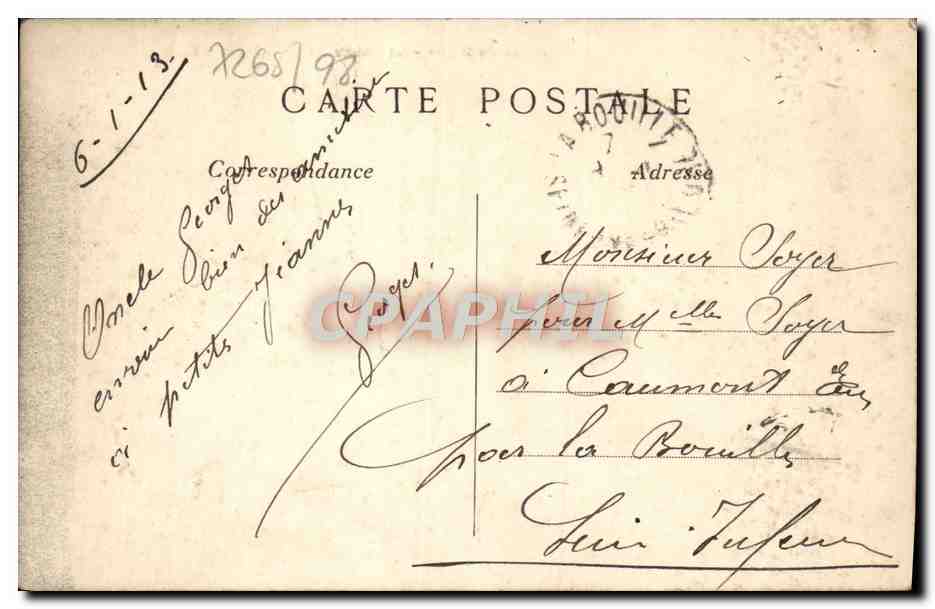 7265/98
CARTE POSTALE
Correspondance
Adresse
LA BOUILLE
6-1-13.
Oncle Georget
envoie bien des amitiés
à petite Jeanne
Georget.
Monsieur Soyer
pour Melle Soyer
à Caumont Eure
par la Bouille
Seine Inferieure
CPAPHIL